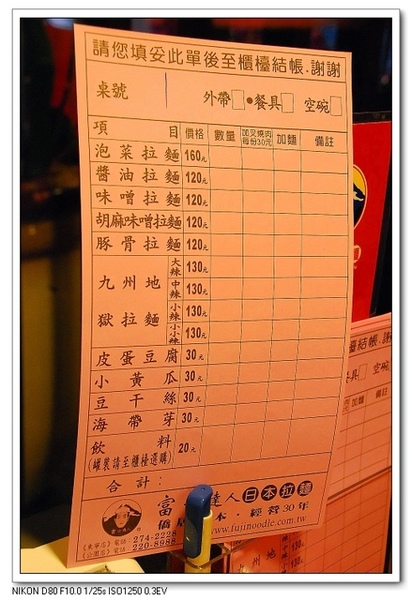 請您填妥此單後至櫃檯結帳.謝謝
桌號 外帶 ● 餐具 空碗
項目 價格 數量 加叉燒肉每份30元 加麵 備註
泡菜拉麵 160元
醬油拉麵 120元
味噌拉麵 120元
胡麻味噌拉麵 120元
豚骨拉麵 120元
九州地獄拉麵 大辣 130元
中辣 130元
小辣 130元
小小辣 130元
皮蛋豆腐 30元
小黃瓜 30元
豆干絲 30元
海帶芽 30元
飲料 20元
(罐裝請至櫃檯選購)
合計:
富 達人日本拉麵
僑居 本.經營30年
電話:274-2228
電話:220-8988
www.fujinoodle.com.tw
檯結帳.謝
餐具 空碗
加麵 備註
NIKON D80 F10.0 1/25s ISO1250 0.3EV